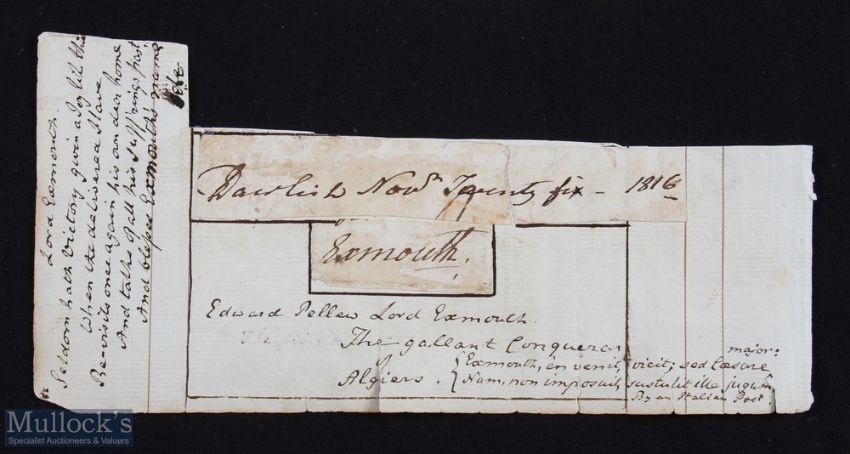 Lord Exmouth.
Seldom hath Victory given a Joy like this
When the delivered Slave
Re-visits once again his own dear home
And talks of all his Suff'rings past,
And blesses Exmouth's name
Dawlish Novr. Twenty six - 1816
Exmouth.
Edward Pellew Lord Exmouth
The gallant Conqueror
of
Algiers.
major:
Exmouth, en venit, vicit; sed Cæsare
Nam, non imposuit, sustulit ille jugum
By an Italian Poet.
Mullock's
Specialist Auctioneers & Valuers